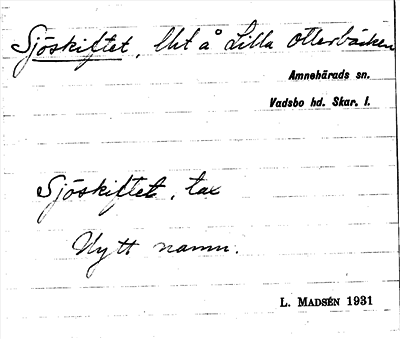 Sjöskiftet, lht å Lilla Otterbäcken
Amnehärads sn.
Vadsbo hd. Skar. l.
Sjöskiftet, tax
Nytt namn.
L. MADSÉN 1931